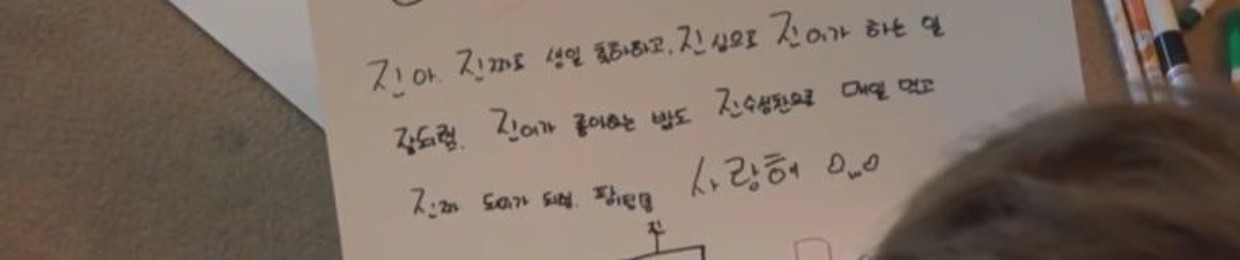 진아. 진짜로 생일 축하하고, 진심으로 진이가 하는 일
잘되렴. 진이가 좋아하는 밥도 진수성찬으로 매일 먹고
진짜 되렴. 사랑해 OwO
진